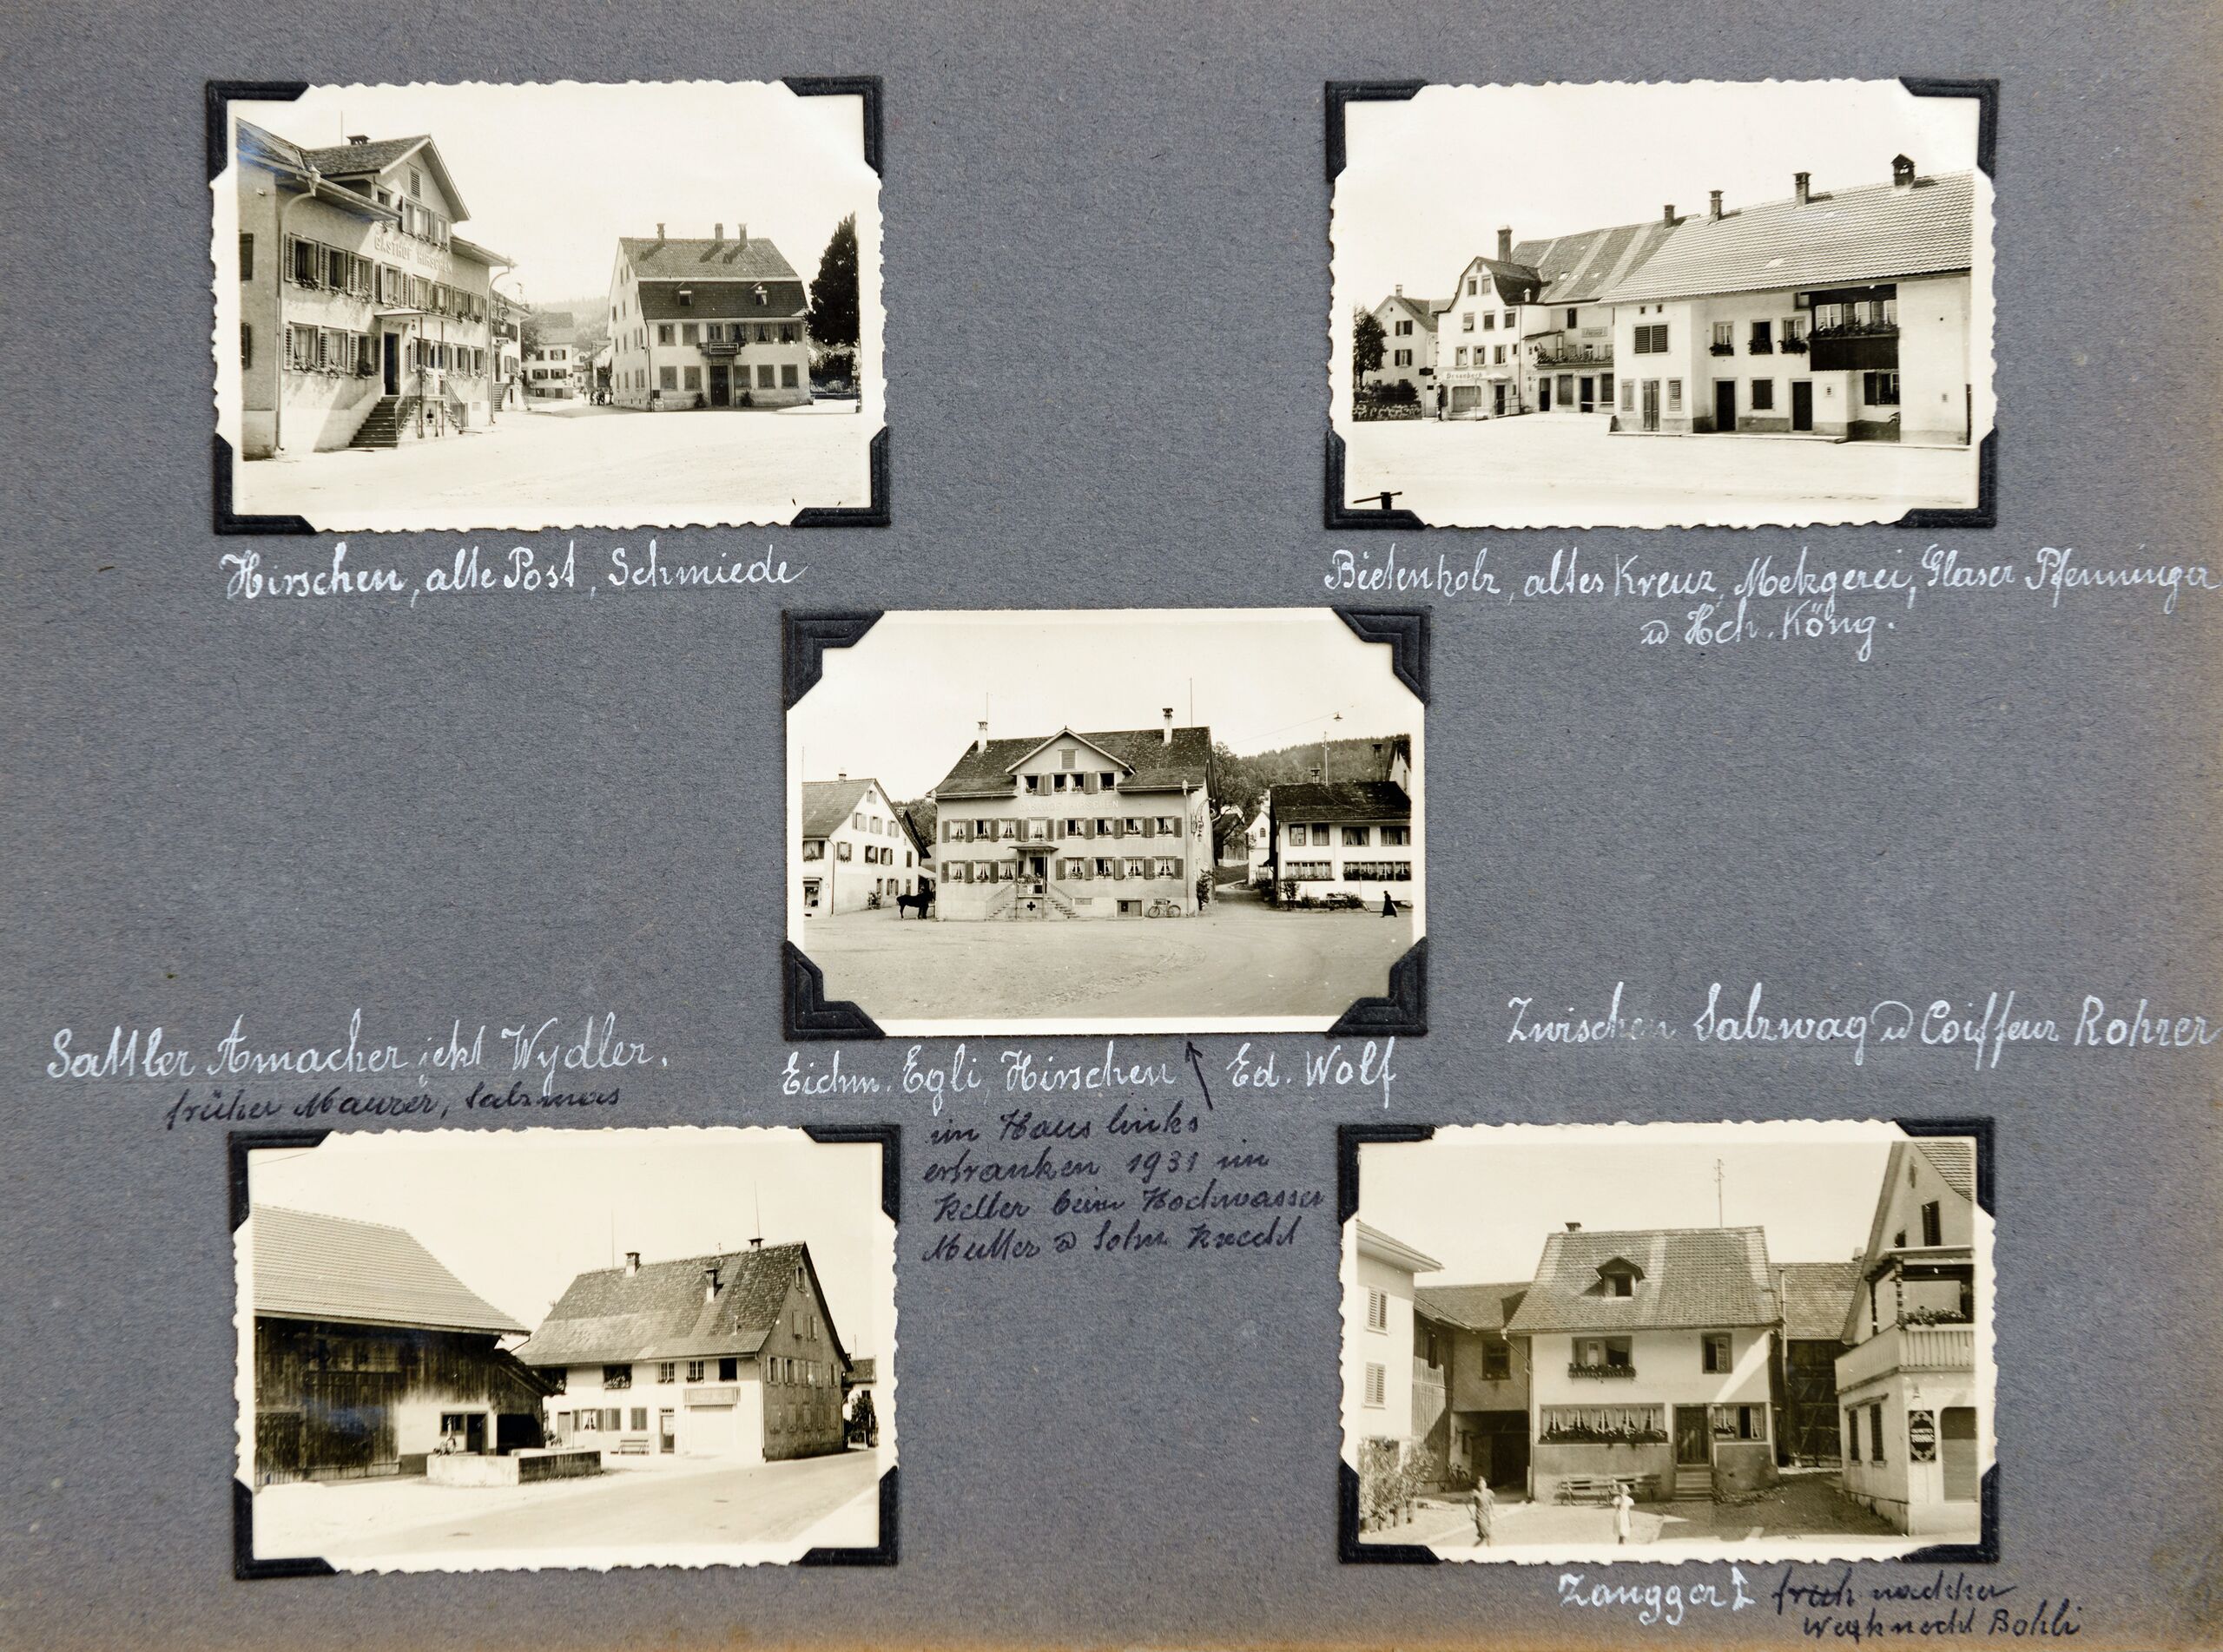 GASTHOF HIRSCHEN
Hirschen, alte Post, Schmiede
Bietenholz, altes Kreuz, Metzgerei, Glaser Pfenninger
u Hch. Köng.
Sattler Amacher jetzt Wydler.
früher Maurer, Salzmas
Eichm. Egli, Hirschen Ed. Wolf
im Haus links
ertranken 1931 im
Keller beim Hochwasser
Mutter u Sohn Knecht
Zwischen Salzwag u Coiffeur Rohrer
Zangger
früh nachher
Wegknecht Bohli